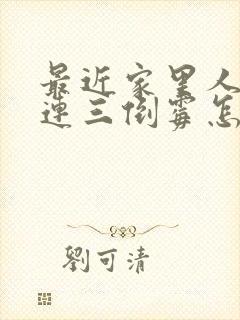 最近家里人
连三倒霉怎
劉可清